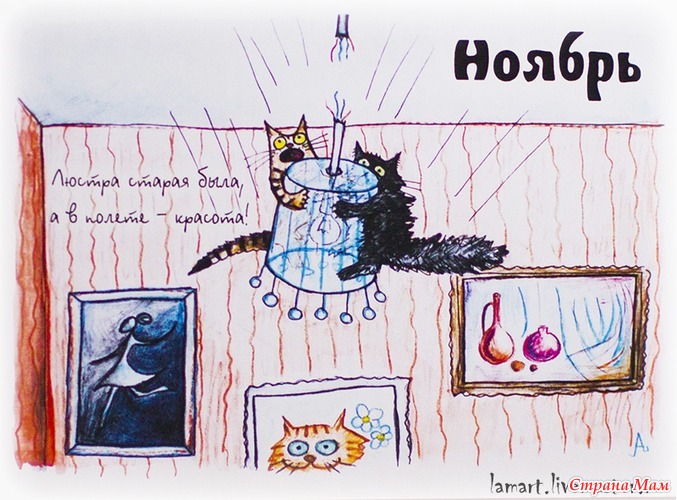 Ноябрь
Люстра старая была,
а в полете – красота!
lamart.liv
СтранаМам